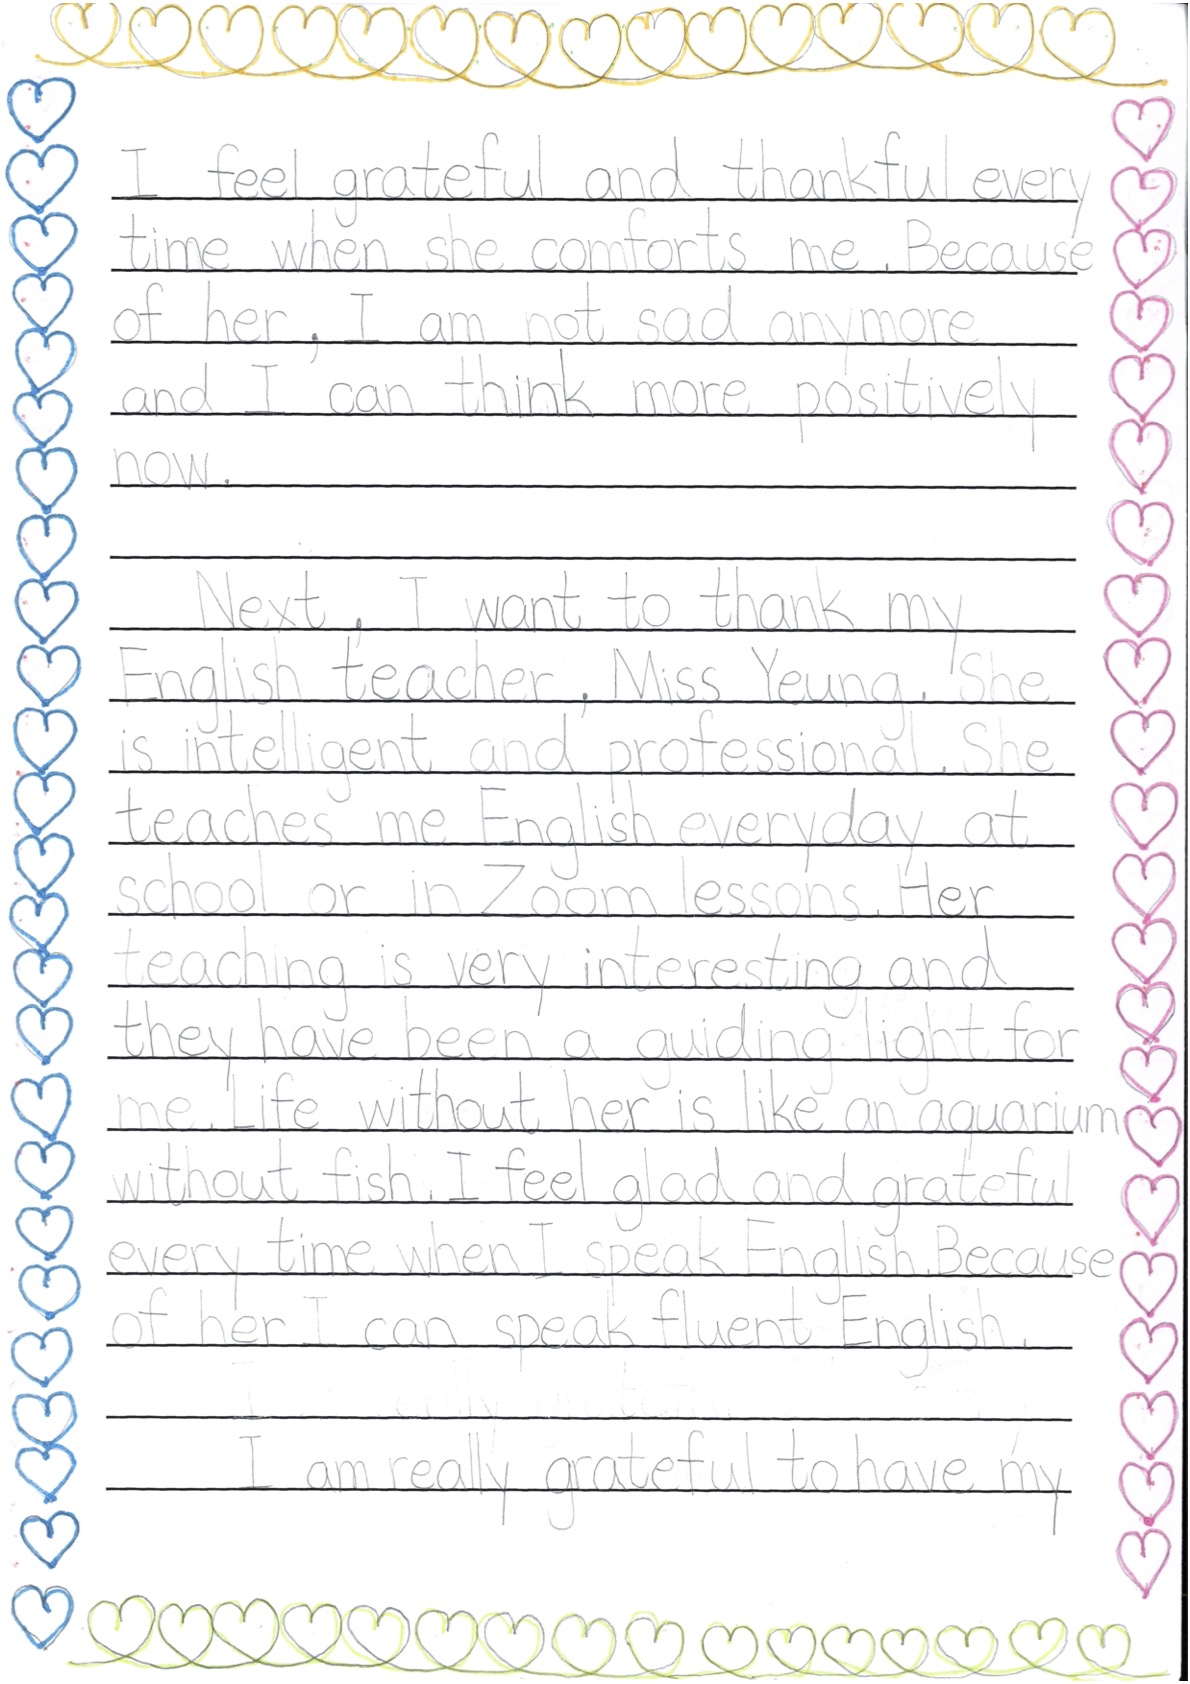 I feel grateful and thankful every
time when she comforts me. Because
of her, I am not sad anymore
and I can think more positively
now.
Next, I want to thank my
English teacher, Miss Yeung. She
is intelligent and professional. She
teaches me English everyday at
school or in Zoom lessons. Her
teaching is very interesting and
they have been a guiding light for
me. Life without her is like an aquarium
without fish. I feel glad and grateful
every time when I speak English. Because
of her I can speak fluent English.
I am really grateful to have my